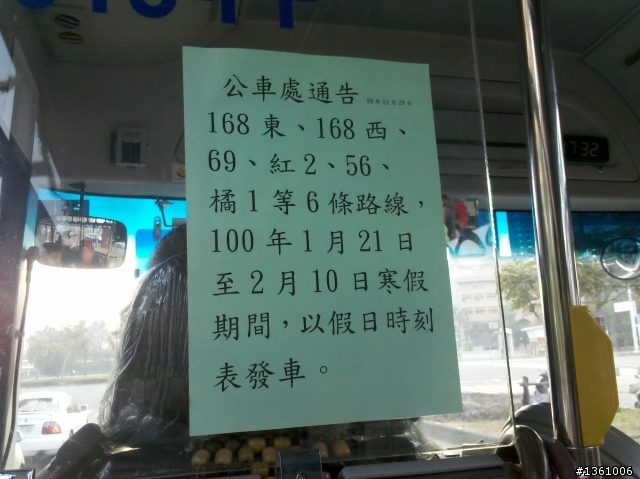 公車處通告
168 東、168 西、
69、紅 2、56、
橘 1 等 6 條路線，
100 年 1 月 21 日
至 2 月 10 日寒假
期間，以假日時刻
表發車。
#1361006